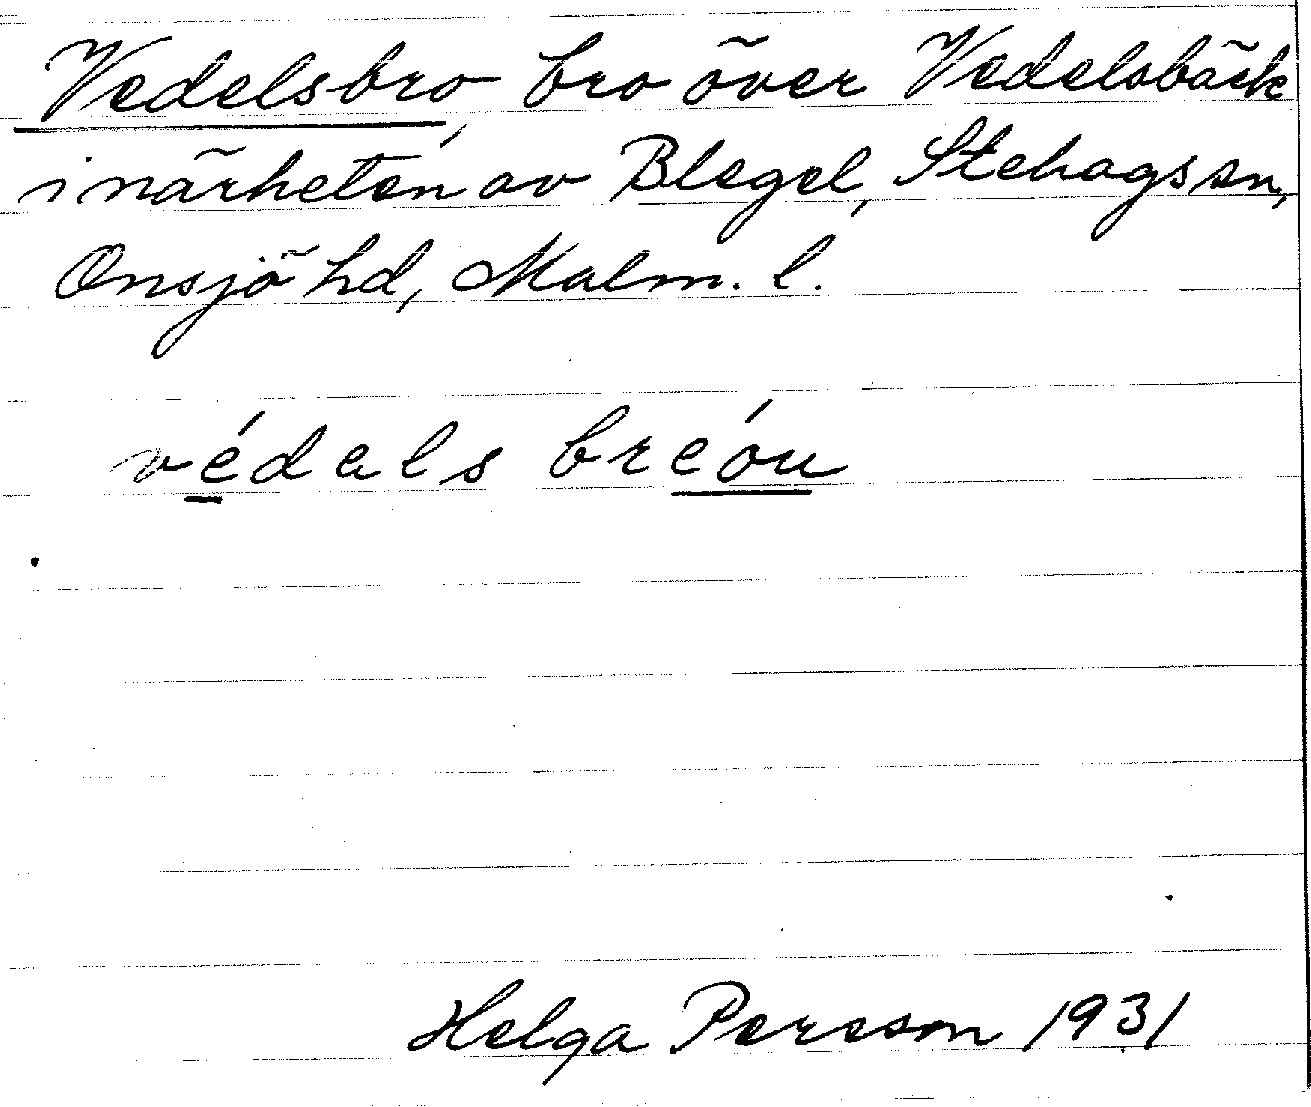 Vedelsbro, bro över Vedelsbäck
i närheten av Blegel, Stehags sn,
Onsjö hd, Malm. l.
védals breóu
Helga Persson 1931